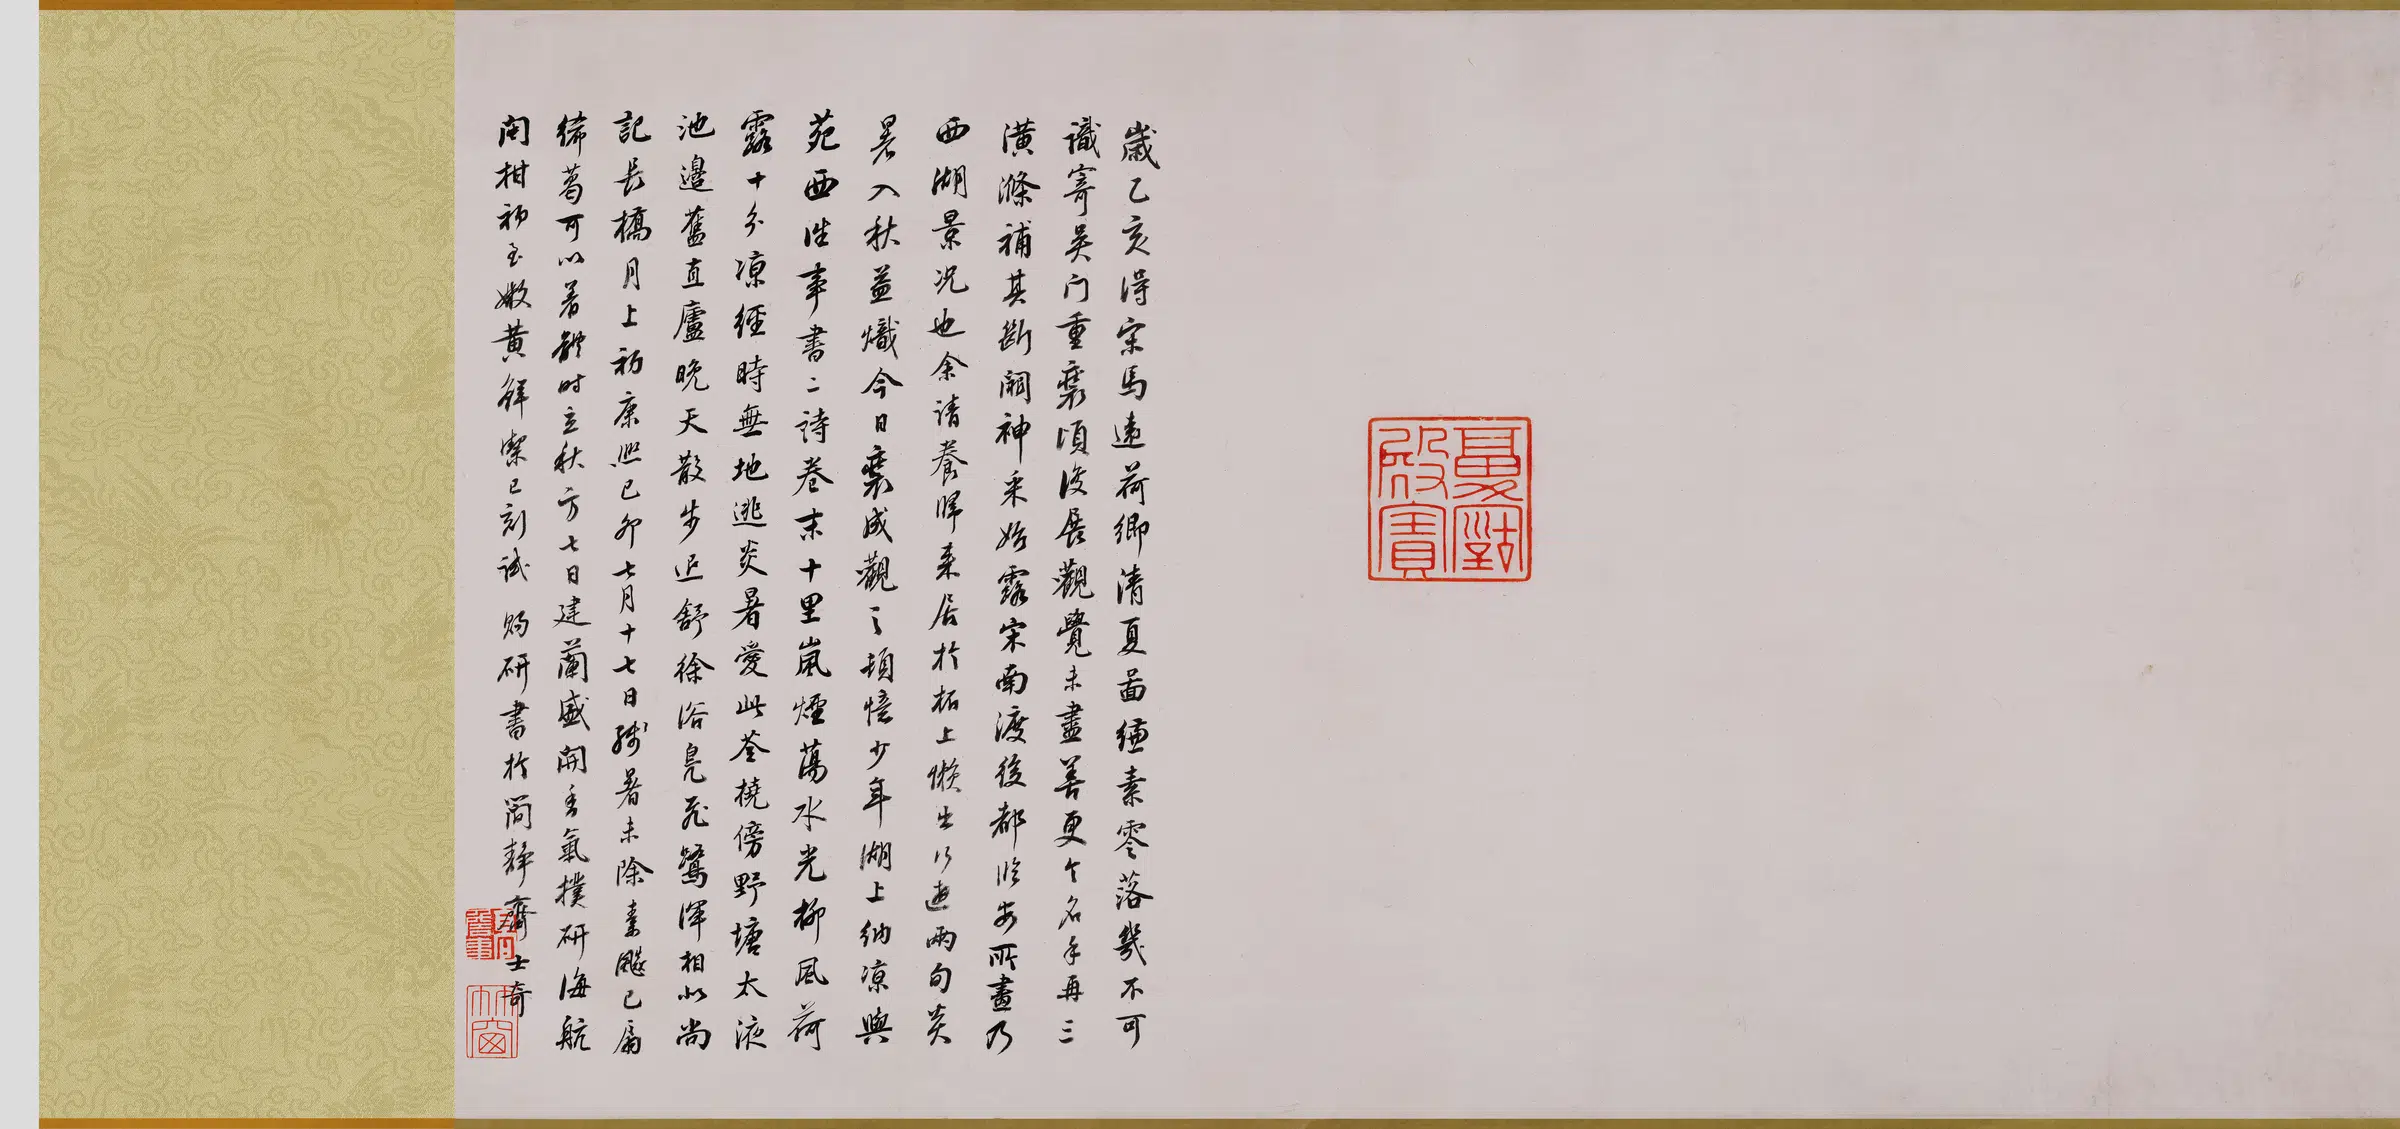 夏對殿寶
歲乙亥得宋馬遠荷鄉清夏圖縑素零落幾不可
識寄吳門重裝頃復展觀覺未盡善更令名手再三
潢滌補其斷闕神采始露宋南渡後都臨安所畫乃
西湖景況也余請養歸來居於柘上懶出行遊兩旬炎
暑入秋益熾今日裝成觀之頓憶少年湖上納涼與
苑西往事書二詩卷末十里嵐煙蕩水光柳風荷
露十分涼經時無地逃炎暑愛此荃橈傍野塘太液
池邊舊直廬晚天散步迟舒徐浴鳧飛鷺渾相似尚
記長橋月上初康熙己卯七月十七日殘暑未除素飈已扇
絺葛可以著體時立秋方七日建蘭盛開香氣撲研海航
閩柑初至嫩黃鮮潔已刻試 賜研書於簡靜齋士奇
竹窗